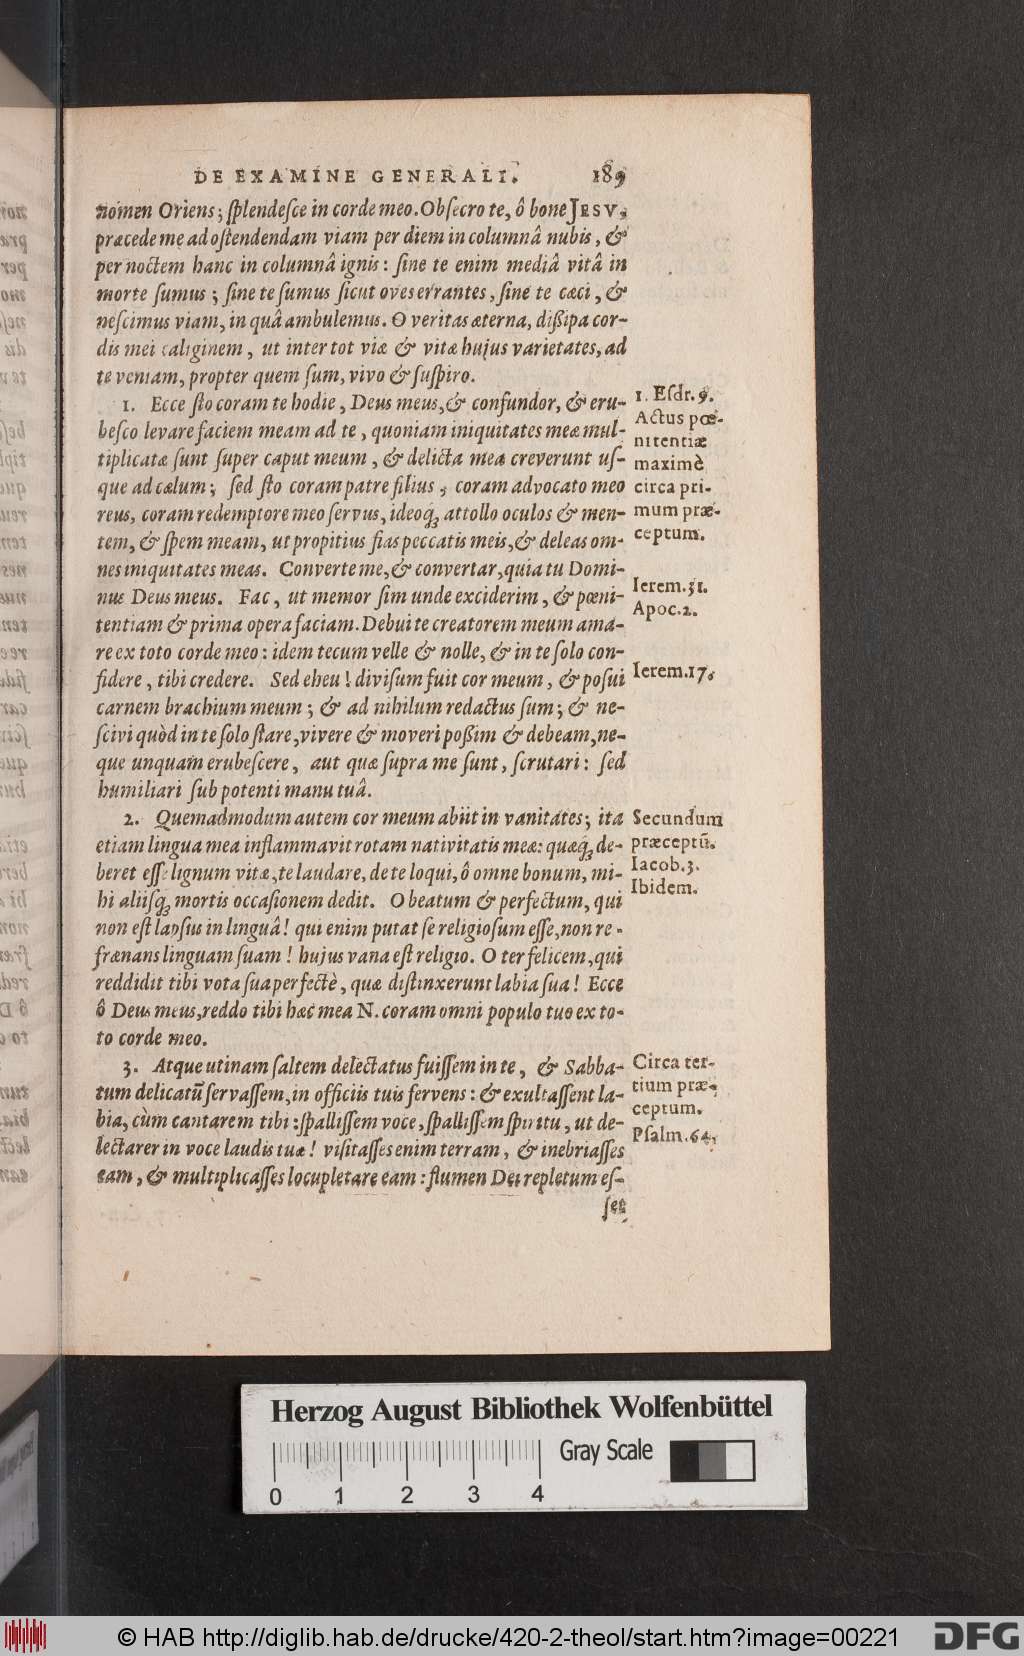 DE EXAMINE GENERALI. 189
nomen Oriens; ſplendeſce in corde meo. Obſecro te, ô bone JESV,
præcede me ad oſtendendam viam per diem in columnâ nubis, &
per noctem hanc in columnâ ignis: ſine te enim mediâ vitâ in
morte ſumus; ſine te ſumus ſicut oves errantes, ſine te cæci, &
neſcimus viam, in quâ ambulemus. O veritas æterna, diſsipa cor-
dis mei caliginem, ut inter tot viæ & vitæ hujus varietates, ad
te veniam, propter quem ſum, vivo & ſuſpiro.
1. Ecce ſto coram te hodie, Deus meus, & confundor, & eru-
beſco levare faciem meam ad te, quoniam iniquitates meæ mul-
tiplicatæ ſunt ſuper caput meum, & delicta mea creverunt uſ-
que ad cælum; ſed ſto coram patre filius, coram advocato meo
reus, coram redemptore meo ſervus, ideoq́; attollo oculos & men-
tem, & ſpem meam, ut propitius fias peccatis meis, & deleas om-
nes iniquitates meas. Converte me, & convertar, quia tu Domi-
nus Deus meus. Fac, ut memor ſim unde exciderim, & pœni-
tentiam & prima opera faciam. Debui te creatorem meum ama-
re ex toto corde meo: idem tecum velle & nolle, & in te ſolo con-
fidere, tibi credere. Sed eheu! diviſum fuit cor meum, & poſui
carnem brachium meum; & ad nihilum redactus ſum; & ne-
ſcivi quòd in te ſolo ſtare, vivere & moveri poſsim & debeam, ne-
que unquam erubeſcere, aut quæ ſupra me ſunt, ſcrutari: ſed
humiliari ſub potenti manu tuâ.
1. Eſdr. 9.
Actus pœ-
nitentiæ
maximè
circa pri-
mum præ-
ceptum.
Ierem. 31.
Apoc. 2.
Ierem. 17.
2. Quemadmodum autem cor meum abiit in vanitates; ita
etiam lingua mea inflammavit rotam nativitatis meæ: quæq́; de-
beret eſſe lignum vitæ, te laudare, de te loqui, ô omne bonum, mi-
hi aliiſq́; mortis occaſionem dedit. O beatum & perfectum, qui
non eſt lapſus in linguâ! qui enim putat ſe religioſum eſſe, non re-
frænans linguam ſuam! hujus vana eſt religio. O ter felicem, qui
reddidit tibi vota ſua perfectè, quæ diſtinxerunt labia ſua! Ecce
ô Deus meus, reddo tibi hæc mea N. coram omni populo tuo ex to-
to corde meo.
Secundum
præceptũ.
Iacob. 3.
Ibidem.
3. Atque utinam ſaltem delectatus fuiſſem in te, & Sabba-
tum delicatũ ſervaſſem, in officiis tuis fervens: & exultaſſent la-
bia, cùm cantarem tibi: ſpalliſſem voce, ſpalliſſem ſpiritu, ut de-
lectarer in voce laudis tuæ! viſitaſſes enim terram, & inebriaſſes
eam, & multiplicaſſes locupletare eam: flumen Dei repletum eſ-
ſet
Circa ter-
tium præ-
ceptum.
Pſalm. 64.
Herzog August Bibliothek Wolfenbüttel
0 1 2 3 4
Gray Scale
© HAB http://diglib.hab.de/drucke/420-2-theol/start.htm?image=00221
DFG